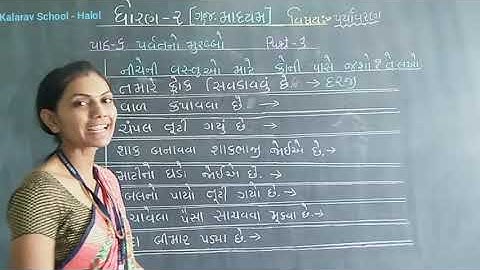 Kalarav School - Halol
ધોરણ - ૨ [ગુજ. માધ્યમ] વિષય:- પર્યાવરણ
પાઠ-૬ પર્વતનો
નીચેની વસ્તુઓ માટે કોની પાસે જશો? તે લખો.
તમારે ફ્રોક સિવડાવવું છે. → દરજી
વાળ કપાવવા છે. →
ચંપલ તૂટી ગયું છે. →
શાક બનાવવા શાકભાજી જોઈએ છે. →
માટીનો ઘડો જોઈએ છે. →
પાયો તૂટી ગયો છે. →
પૈસા સાચવવા મૂક્યા છે. →
બીમાર પડ્યા છે. →